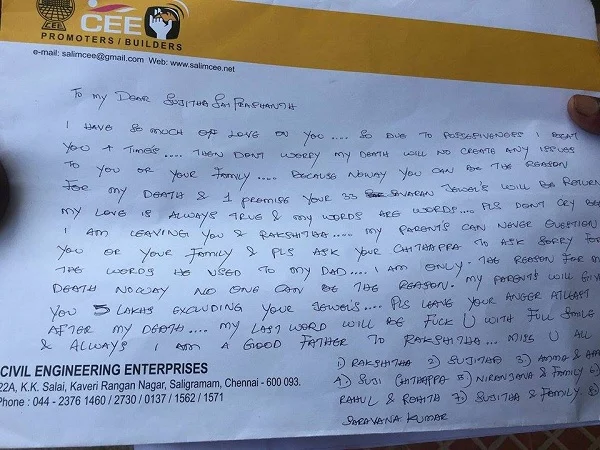 CEE
CEE
PROMOTERS / BUILDERS
e-mail: salimcee@gmail.com Web: www.salimcee.net
To my Dear Sujitha Sai Prashanth
I have so much off love on you .... so due to possesiveness I beat
you 4 times .... then dont worry my death will no create any issues
to you or your family .... because noway you can be the reason
for my death & I promise your 33 savaran jewel's will be return
my love is always true & my words are words.... pls dont cry
I am leaving you & Rakshitha .... my parents can never question
you or your family & pls ask your chithappa to ask sorry for
the words he used to my dad .... I am only. the reason for my
death noway no one can be the reason. my parents will give
you 5 lakhs excluding your jewel's .... pls leave your anger atleast
after my death .... my last word will be fuck U with full smile
& always I am a good father to Rakshitha ... miss U all
1) Rakshitha 2) Sujitha 3) Amma &
4) Suji Chithappa 5) Niranjana & family
Rahul & Rohita 7) Sujitha & family. 8)
Saravana Kumar
CIVIL ENGINEERING ENTERPRISES
22A, K.K. Salai, Kaveri Rangan Nagar, Saligramam, Chennai - 600 093.
Phone : 044 - 2376 1460 / 2730 / 0137 / 1562 / 1571